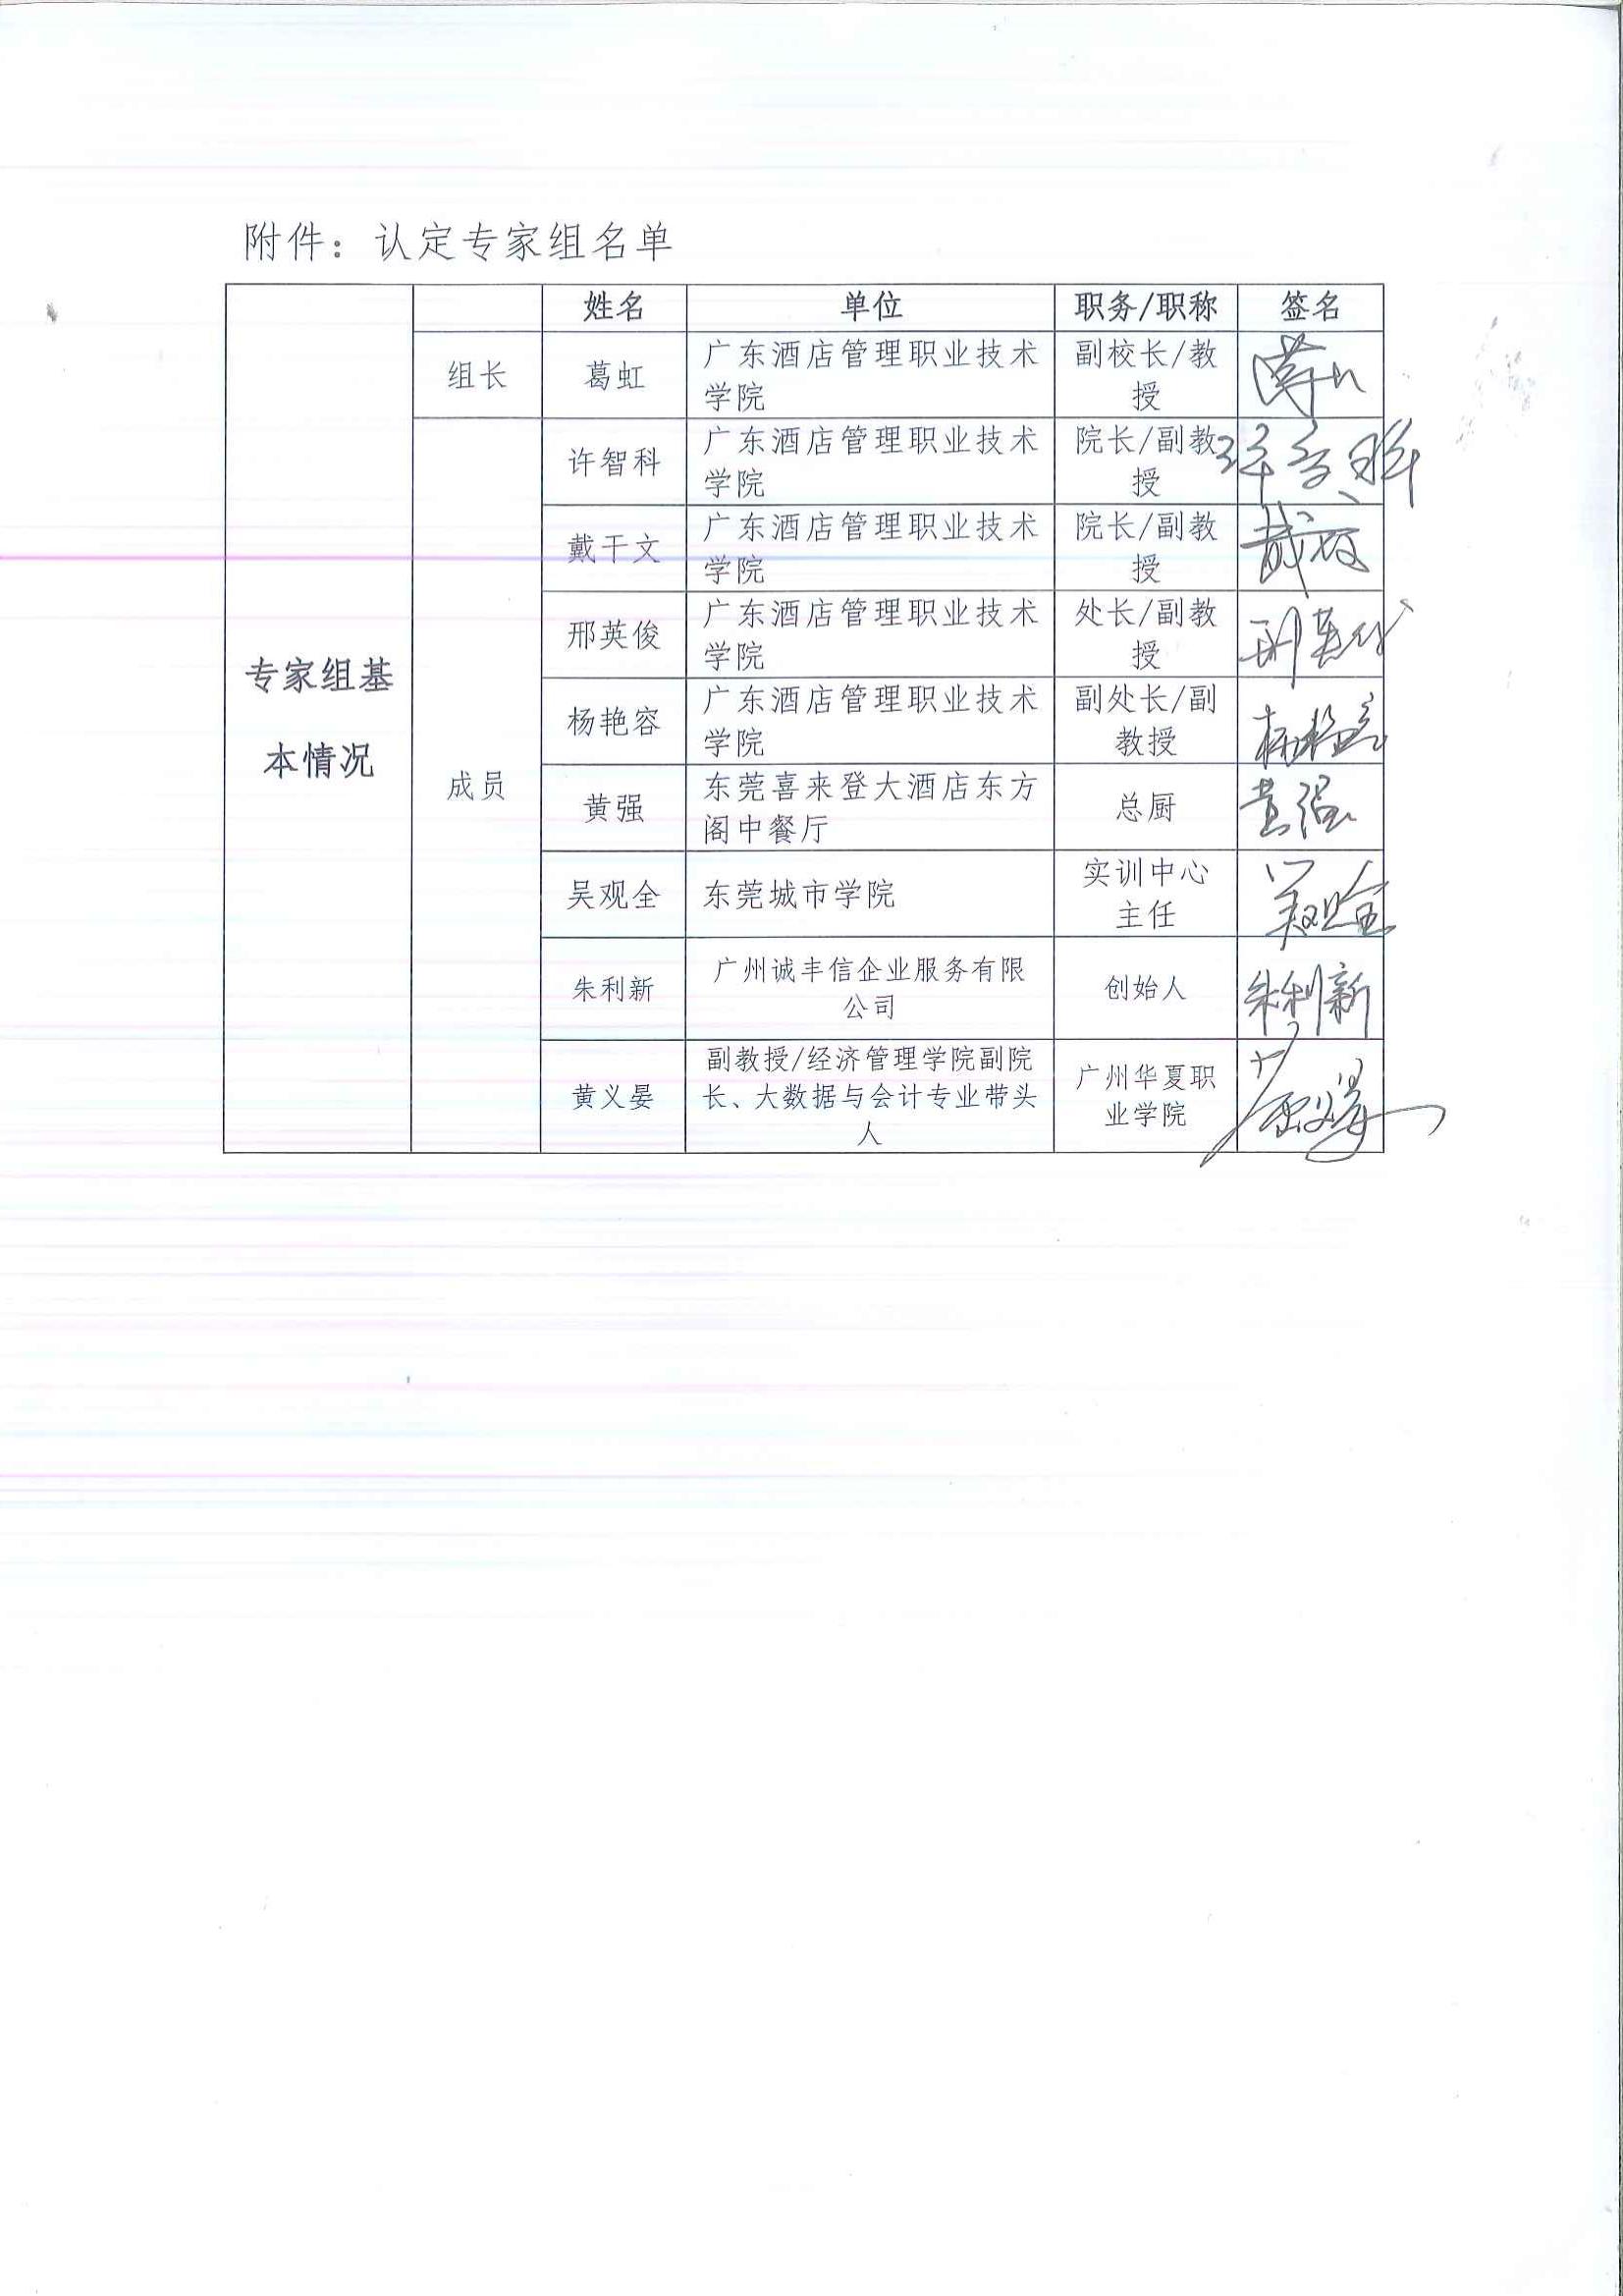 附件：认定专家组名单
姓名 单位 职务/职称 签名
组长 葛虹 广东酒店管理职业技术学院 副校长/教授
专家组基本情况
成员
许智科 广东酒店管理职业技术学院 院长/副教授
戴干文 广东酒店管理职业技术学院 院长/副教授
邢英俊 广东酒店管理职业技术学院 处长/副教授 邢英俊
杨艳容 广东酒店管理职业技术学院 副处长/副教授
黄强 东莞喜来登大酒店东方阁中餐厅 总厨 黄强
吴观全 东莞城市学院 实训中心主任 吴观全
朱利新 广州诚丰信企业服务有限公司 创始人 朱利新
黄义晏 副教授/经济管理学院副院长、大数据与会计专业带头人 广州华夏职业学院